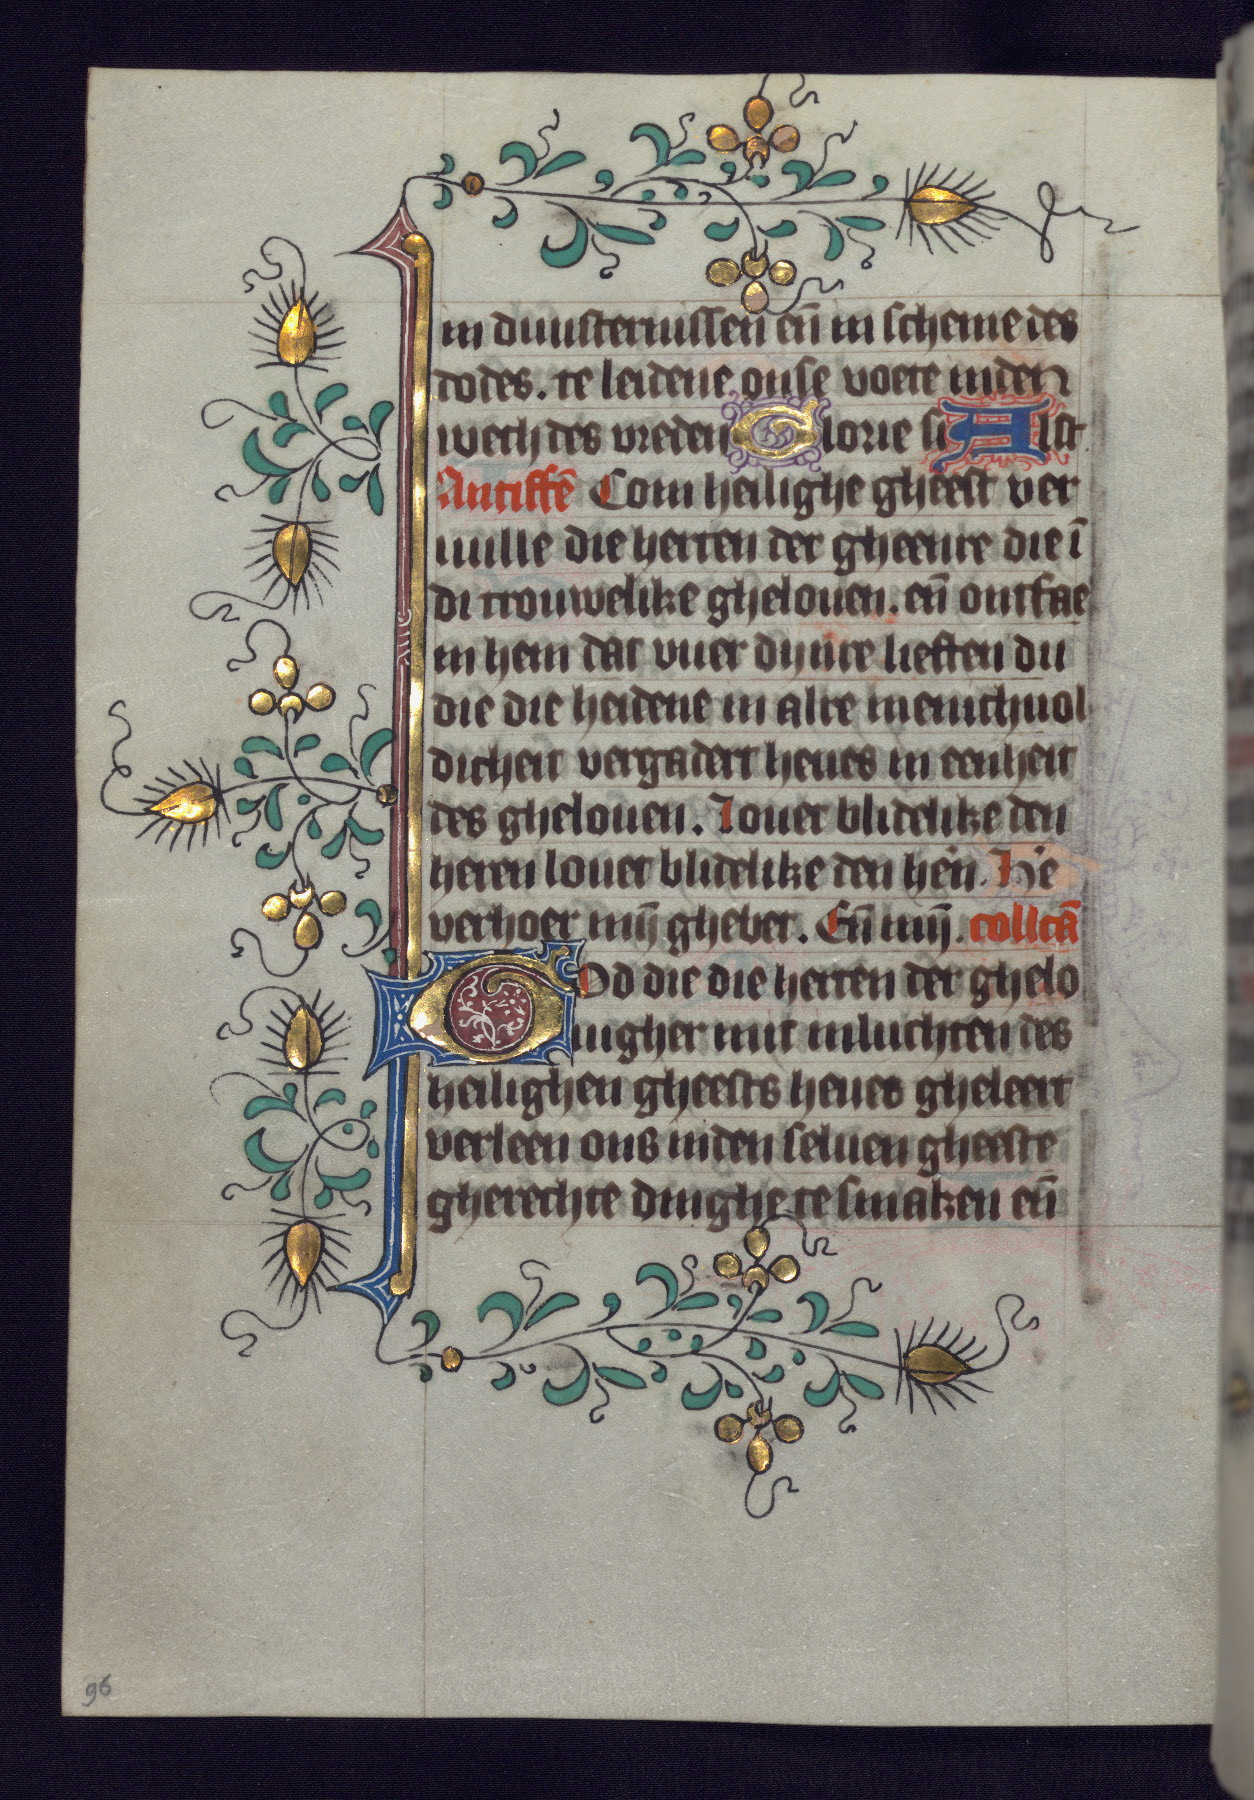 in duusternissen eñ in scheme des
dodes. te leidene onse voete inden
wech des vreden Glorie si Alst
Antiffē Com heilighe gheest ver
uulle die herten der gheenre die ī
di trouwelike ghelouen. eñ ontfae
in hem dat vuer dijnre lieften du
die die heidene in alre menichuol
dicheit vergadert heues in eenheit
des ghelouen. Louet blidelike den
heren louet blidelike den hēn. H'e
verhoer mijn ghebet. Eñ mij. collcā
God die die herten der ghelo
uigher mit inluchten des
heilighen gheests heues gheleert
verleen ons inden seluen gheeste
gherechte dinghe te smaken eñ
96